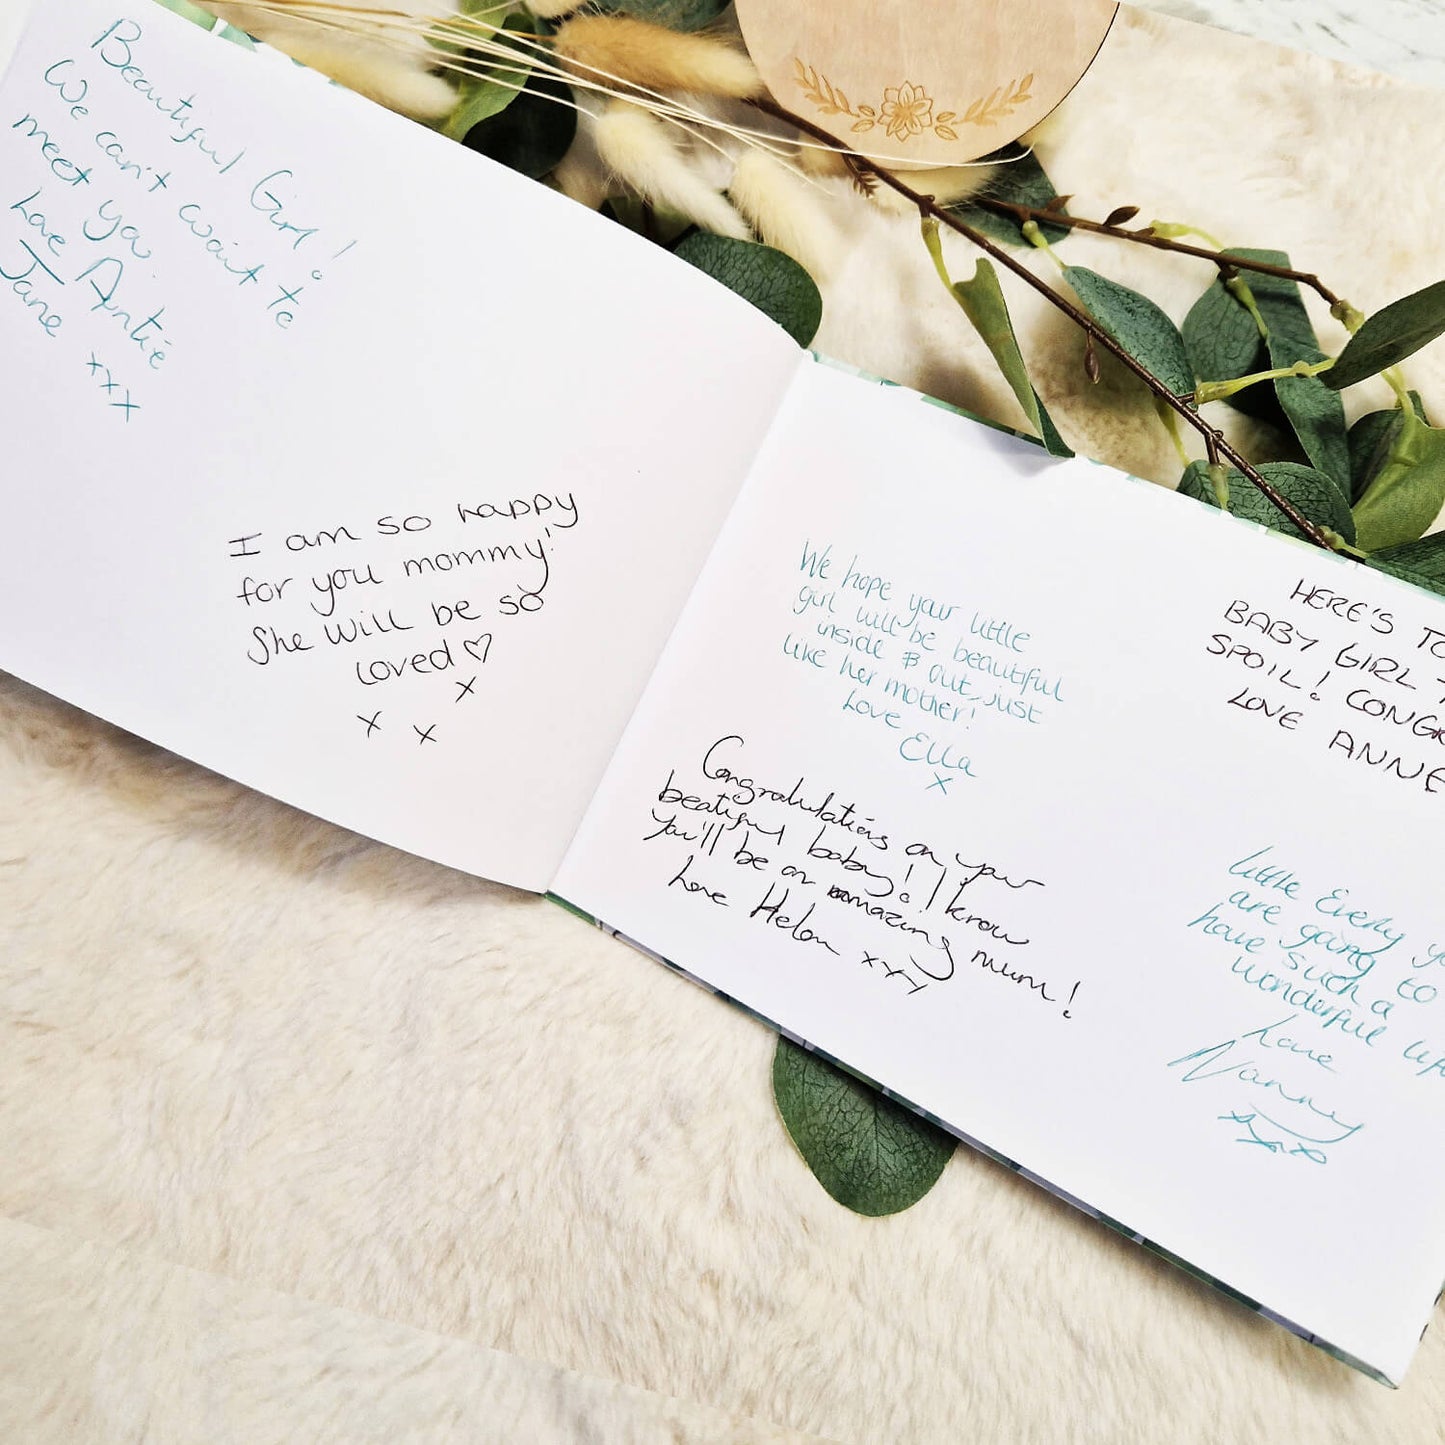 Beautiful Girl!
We can't wait to
meet you.
Love Auntie
Jane xxx
I am so happy
for you mommy!
She will be so
loved ♡
x
x x
We hope your little
girl will be beautiful
inside & out, just
like her mother!
Love
Ella
x
Congratulations on your
beatiful baby! I know
You'll be an amazing mum!
Love Helen xxx
HERE'S TO
BABY GIRL
SPOIL! CONGR
LOVE ANNE
Little Everly
are going to
have such a
wonderful life
Love
Nanny
xxxx